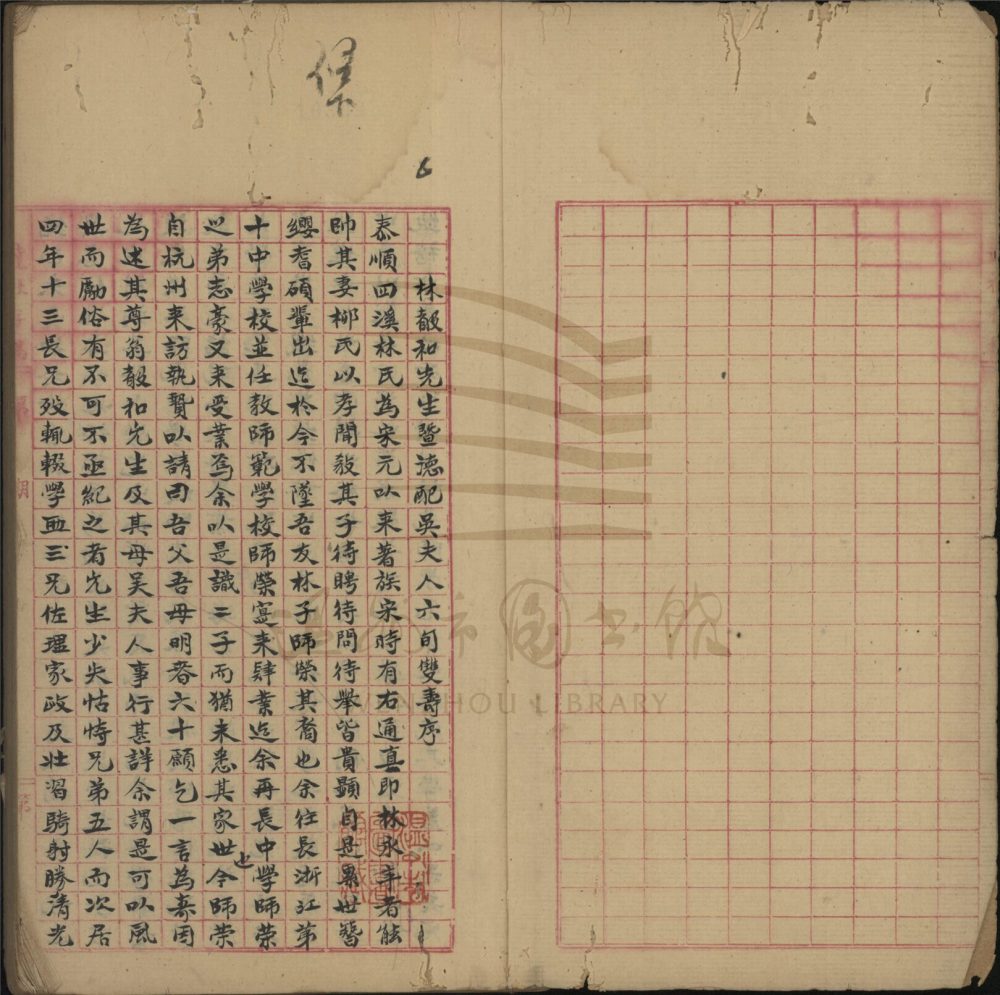 保下
6
林殽和先生暨德配吳夫人六旬雙壽序
泰順四溪林氏為宋元以来著族宋時有右通直郎林永年者能
帥其妻柳氏以孝聞教其子待聘待問待舉皆貴顯自是累世簪
纓耆碩輩出迄於今不墜吾友林子師榮其裔也余往長浙江第
十中學校並任教師範學校師榮寔来肄業迄余再長中學師榮
之弟志豪又来受業焉余以是識二子而猶未悉其家世也今師榮
自杭州来訪執贄以請曰吾父吾母明春六十願乞一言為壽因
為述其尊翁殽和先生及其母吴夫人事行甚詳余謂是可以風
世而勵俗有不可不亟紀之者先生少失怙恃兄弟五人而次居
四年十三長兄殁輒輟學與三兄佐理家政及壯習騎射勝清光
溫州圖書館
WENZHOU LIBRARY